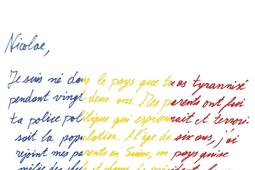 Nicolae,
Je suis né dans le pays que tu as tyrannisé
pendant vingt-deux ans. Mes parents ont fui
ta police politique qui espionnait et terrori-
sait la population. À l'âge de six ans, j'ai
rejoint mes parents en Suisse, un pays